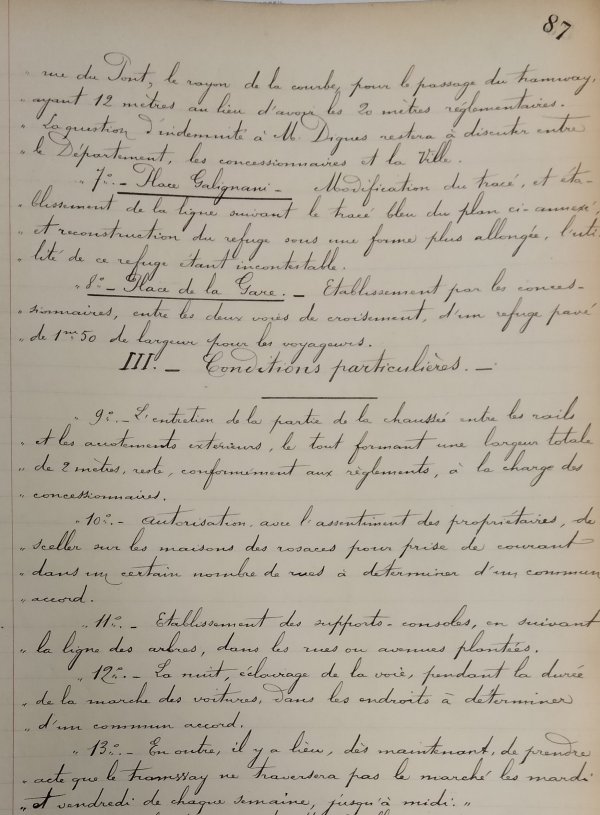 87
" rue du Pont, le rayon de la courbe, pour le passage du tramway,
" ayant 12 mètres au lieu d'avoir les 20 mètres réglementaires.
" La question d'indemnité à M. Digues restera à discuter entre
" le Département, les concessionnaires et la Ville.
" 7º. - Place Galignani - Modification du tracé, et éta-
" blissement de la ligne suivant le tracé bleu du plan ci-annexé,
" et reconstruction du refuge sous une forme plus allongée, l'uti
" lité de ce refuge étant incontestable.
" 8º - Place de la Gare. - Etablissement par les conces-
" sionnaires, entre les deux voies de croisement, d'un refuge pavé
" de 1m50 de largeur pour les voyageurs.
III. - Conditions particulières. -
" 9º. - L'entretien de la partie de la chaussée entre les rails
" et les accotements extérieurs, le tout formant une largeur totale
" de 2 mètres, reste, conformément aux règlements, à la charge des
" concessionnaires.
" 10º. - Autorisation, avec l'assentiment des propriétaires, de
" sceller sur les maisons des rosaces pour prise de courant
" dans un certain nombre de rues à déterminer d'un commun
" accord.
" 11º. - Etablissement des supports-consoles, en suivant
" la ligne des arbres, dans les rues ou avenues plantées.
" 12º. - La nuit, éclairage de la voie, pendant la durée
" de la marche des voitures, dans les endroits à déterminer
" d'un commun accord.
" 13º. - En outre, il y a lieu, dès maintenant, de prendre
" acte que le tramway ne traversera pas le marché les mardi
" et vendredi de chaque semaine, jusqu'à midi. "